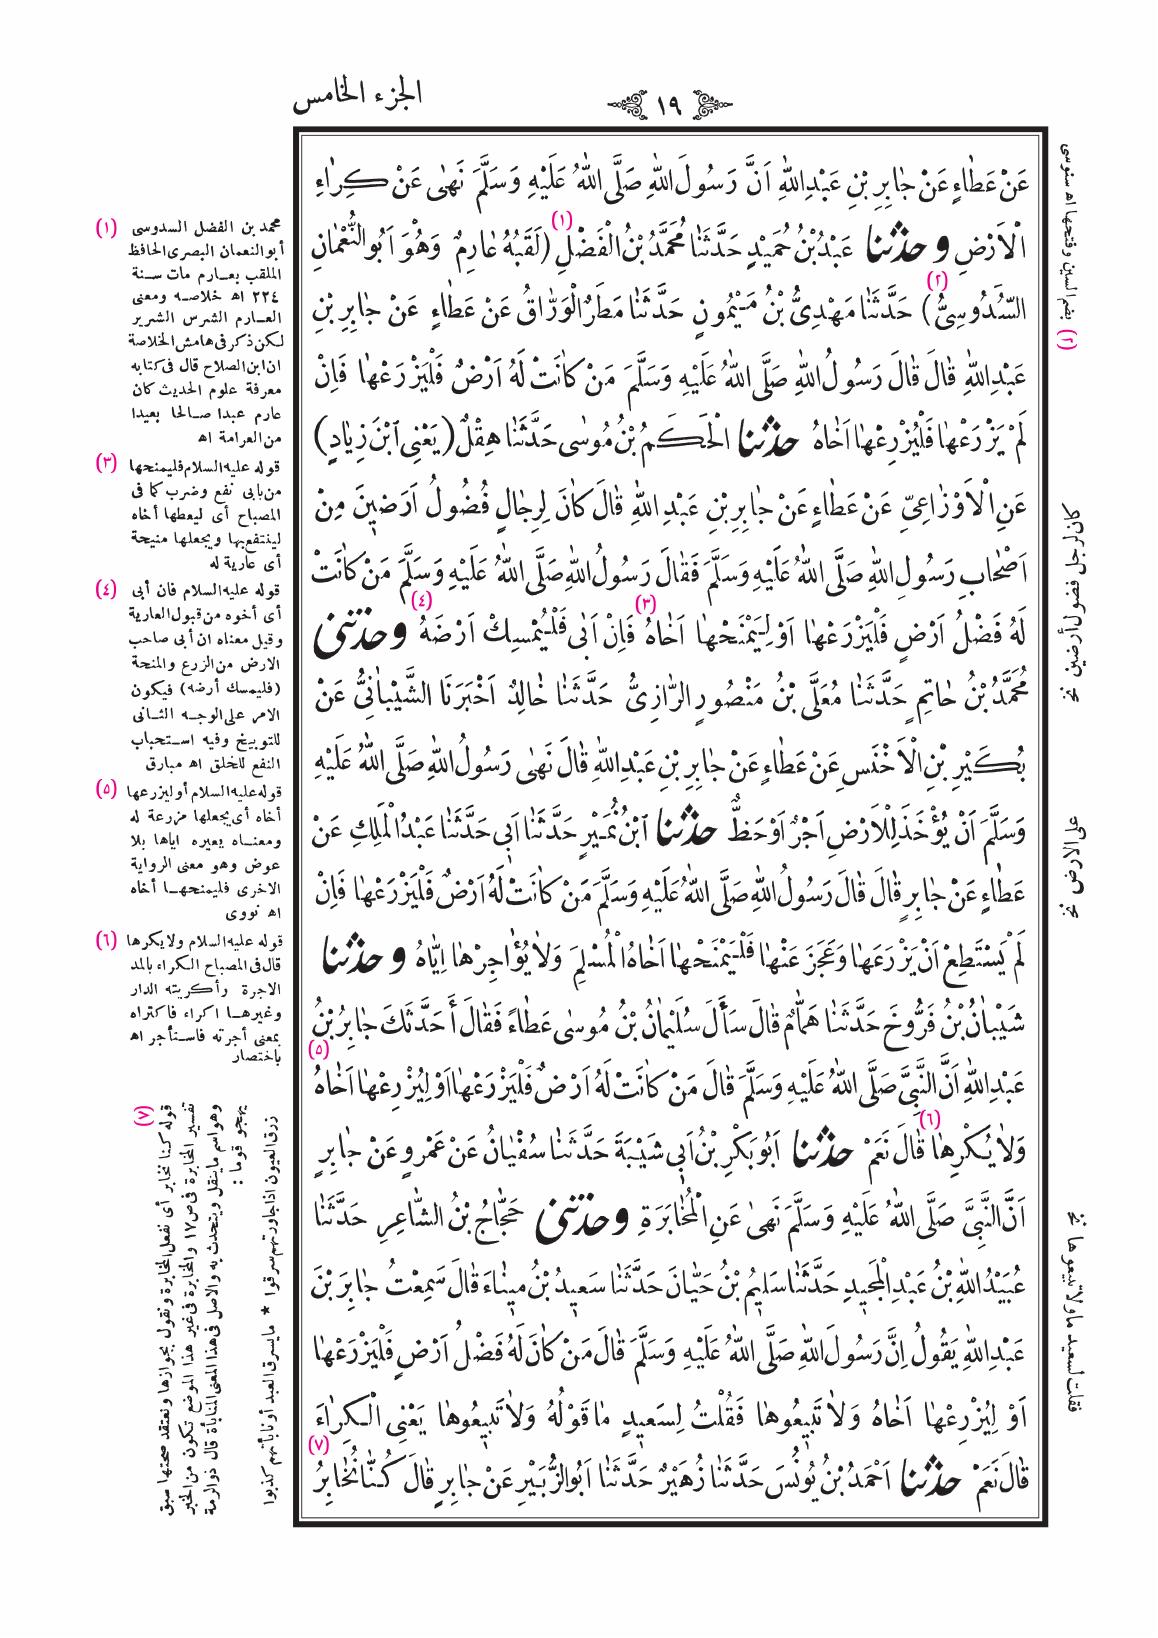 الجزء الخامس
١٩
عَنْ عَطَاءٍ عَنْ جَابِرِ بْنِ عَبْدِاللّٰهِ اَنَّ رَسُولَ اللّٰهِ صَلَّى اللّٰهُ عَلَيْهِ وَسَلَّمَ نَهٰى عَنْ كِرَاءِ
الْاَرْضِ و حدثنا عَبْدُ بْنُ حُمَيْدٍ حَدَّثَنَا مُحَمَّدُ بْنُ الْفَضْلِ (١) (لَقَبُهُ عَارِمٌ وَهُوَ اَبُو النُّعْمَانِ
السَّدُوسِىُّ (٢) ) حَدَّثَنَا مَهْدِىُّ بْنُ مَيْمُونٍ حَدَّثَنَا مَطَرٌ الْوَرَّاقُ عَنْ عَطَاءٍ عَنْ جَابِرِ بْنِ
عَبْدِاللّٰهِ قَالَ قَالَ رَسُولُ اللّٰهِ صَلَّى اللّٰهُ عَلَيْهِ وَسَلَّمَ مَنْ كَانَتْ لَهُ اَرْضٌ فَلْيَزْرَعْهَا فَاِنْ
لَمْ يَزْرَعْهَا فَلْيُزْرِعْهَا اَخَاهُ حدثنا الْحَكَمُ بْنُ مُوسٰى حَدَّثَنَا هِقْلٌ (يَعْنِى ابْنَ زِيَادٍ)
عَنِ الْاَوْزَاعِىِّ عَنْ عَطَاءٍ عَنْ جَابِرِ بْنِ عَبْدِ اللّٰهِ قَالَ كَانَ لِرِجَالٍ فُضُولُ اَرَضِينَ مِنْ
اَصْحَابِ رَسُولِ اللّٰهِ صَلَّى اللّٰهُ عَلَيْهِ وَسَلَّمَ فَقَالَ رَسُولُ اللّٰهِ صَلَّى اللّٰهُ عَلَيْهِ وَسَلَّمَ مَنْ كَانَتْ
لَهُ فَضْلُ اَرْضٍ فَلْيَزْرَعْهَا اَوْ لِيَمْنَحْهَا اَخَاهُ (٣) فَاِنْ اَبٰى فَلْيُمْسِكْ اَرْضَهُ (٤) و حدثنى
مُحَمَّدُ بْنُ حَاتِمٍ حَدَّثَنَا مُعَلَّى بْنُ مَنْصُورٍ الرَّازِىُّ حَدَّثَنَا خَالِدٌ اَخْبَرَنَا الشَّيْبَانِىُّ عَنْ
بُكَيْرِ بْنِ الْاَخْنَسِ عَنْ عَطَاءٍ عَنْ جَابِرِ بْنِ عَبْدِاللّٰهِ قَالَ نَهٰى رَسُولُ اللّٰهِ صَلَّى اللّٰهُ عَلَيْهِ
وَسَلَّمَ اَنْ يُؤْخَذَ لِلْاَرْضِ اَجْرٌ اَوْ حَظٌّ حدثنا ابْنُ نُمَيْرٍ حَدَّثَنَا اَبِى حَدَّثَنَا عَبْدُ الْمَلِكِ عَنْ
عَطَاءٍ عَنْ جَابِرٍ قَالَ قَالَ رَسُولُ اللّٰهِ صَلَّى اللّٰهُ عَلَيْهِ وَسَلَّمَ مَنْ كَانَتْ لَهُ اَرْضٌ فَلْيَزْرَعْهَا فَاِنْ
لَمْ يَسْتَطِعْ اَنْ يَزْرَعَهَا وَعَجَزَ عَنْهَا فَلْيَمْنَحْهَا اَخَاهُ الْمُسْلِمَ وَلَا يُؤَاجِرْهَا اِيَّاهُ و حدثنا
شَيْبَانُ بْنُ فَرُّوخَ حَدَّثَنَا هَمَّامٌ قَالَ سَأَلَ سُلَيْمَانُ بْنُ مُوسٰى عَطَاءً فَقَالَ أَحَدَّثَكَ جَابِرُ بْنُ
عَبْدِاللّٰهِ اَنَّ النَّبِىَّ صَلَّى اللّٰهُ عَلَيْهِ وَسَلَّمَ قَالَ مَنْ كَانَتْ لَهُ اَرْضٌ فَلْيَزْرَعْهَا اَوْ لِيُزْرِعْهَا اَخَاهُ (٥)
وَلَا يُكْرِهَا (٦) قَالَ نَعَمْ حدثنا اَبُو بَكْرِ بْنُ اَبِى شَيْبَةَ حَدَّثَنَا سُفْيَانُ عَنْ عَمْرٍو عَنْ جَابِرٍ
اَنَّ النَّبِىَّ صَلَّى اللّٰهُ عَلَيْهِ وَسَلَّمَ نَهٰى عَنِ الْمُخَابَرَةِ و حدثنى حَجَّاجُ بْنُ الشَّاعِرِ حَدَّثَنَا
عُبَيْدُ اللّٰهِ بْنُ عَبْدِ الْمَجِيدِ حَدَّثَنَا سَلِيمُ بْنُ حَيَّانَ حَدَّثَنَا سَعِيدُ بْنُ مِينَاءَ قَالَ سَمِعْتُ جَابِرَ بْنَ
عَبْدِاللّٰهِ يَقُولُ اِنَّ رَسُولَ اللّٰهِ صَلَّى اللّٰهُ عَلَيْهِ وَسَلَّمَ قَالَ مَنْ كَانَ لَهُ فَضْلُ اَرْضٍ فَلْيَزْرَعْهَا
اَوْ لِيُزْرِعْهَا اَخَاهُ وَلَا تَبِيعُوهَا فَقُلْتُ لِسَعِيدٍ مَا قَوْلُهُ وَلَا تَبِيعُوهَا يَعْنِى الْكِرَاءَ
قَالَ نَعَمْ حدثنا اَحْمَدُ بْنُ يُونُسَ حَدَّثَنَا زُهَيْرٌ حَدَّثَنَا اَبُو الزُّبَيْرِ عَنْ جَابِرٍ قَالَ كُنَّا نُخَابِرُ (٧)
(١) محمد بن الفضل السدوسى
أبو النعمان البصرى الحافظ
الملقب بعارم مات سنة
٢٢٤ اه خلاصه ومعنى
العارم الشرس الشرير
لكن ذكر فى هامش الخلاصة
ان ابن الصلاح قال فى كتابه
معرفة علوم الحديث كان
عارم عبدا صالحا بعيدا
من العرامة اه
(٣) قوله عليه السلام فليمنحها
من بابى نفع وضرب كما فى
المصباح أى ليعطها أخاه
لينتفع بها ويجعلها منيحة
أى عارية له
(٤) قوله عليه السلام فان أبى
أى أخوه من قبول العارية
وقيل معناه ان أبى صاحب
الارض من الزرع والمنحة
(فليمسك أرضه) فيكون
الامر على الوجه الثانى
للتوبيخ وفيه استحباب
النفع للخلق اه مبارق
(٥) قوله عليه السلام أو ليزرعها
أخاه أى يجعلها مزرعة له
ومعناه يعيره اياها بلا
عوض وهو معنى الرواية
الاخرى فليمنحها أخاه
اه نووى
(٦) قوله عليه السلام ولا يكرها
قال فى المصباح الكراء بالمد
الاجرة وأكريته الدار
وغيرها اكراء فاكتراه
بمعنى أجرته فاستأجر اه
باختصار
(٧) قوله كنا نخابر أى نفعل المخابرة ونقول بجوازها ونعتقد صحتها سبق
تفسير المخابرة فى ص ١٧ والمخابرة فى غير هذا الموضع تكون من الخبر
وهو اسم ما ينقل ويتحدث به والاصل فى هذا المعنى المنابأة قال ذو الرمة
يهجو قوما :
زرق العيون اذا جاورتهم سرقوا * ما يسرق العبد أو نابأتهم كذبوا
(٢) بضم السين وفتحها اه سنوسى
كان لرجل فضول أرضين نخ
على الارض نخ
فقلت لسعيد ما ولا تبيعوها نخ